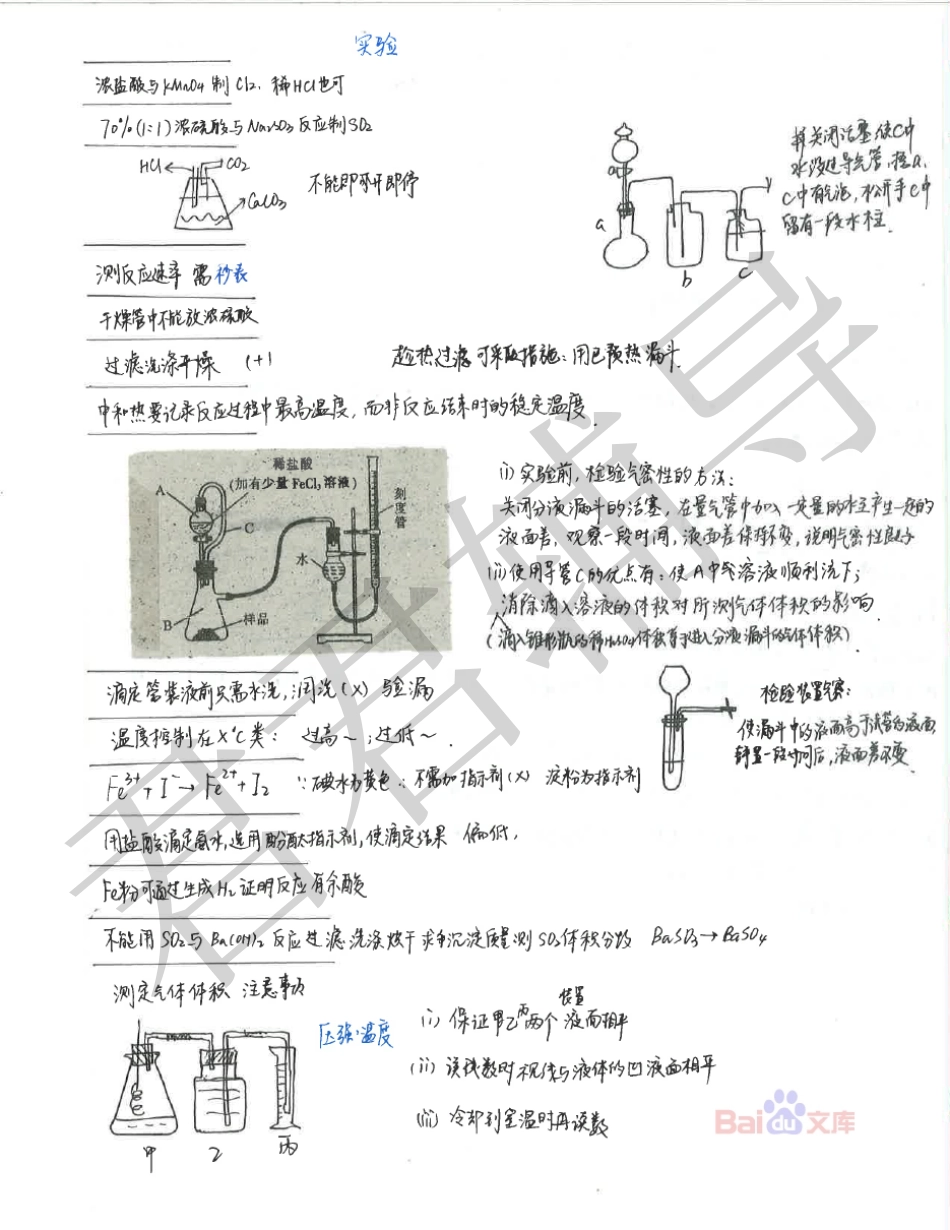 实验
浓盐酸与KMnO4制Cl2. 稀HCl也可
70%(1:1)浓硫酸与Na2SO3反应制SO2
HCl CO2
CaCO3
不能即开即停
关闭活塞使C中
水没过导气管,捂a,
C中有气泡,松开手C中
留有一段水柱.
a
a
b
c
测反应速率 需秒表
干燥管中不能放浓硫酸
过滤洗涤干燥 (+)
趁热过滤可采取措施:用已预热漏斗.
中和热要记录反应过程中最高温度,而非反应结束时的稳定温度.
稀盐酸
(加有少量FeCl3溶液)
刻度管
A
C
水
B
样品
(i)实验前,检验气密性的方法:
关闭分液漏斗的活塞,在量气管中加入一定量的水至产生一定的
液面差,观察一段时间,液面差保持不变,说明气密性良好
(ii)使用导管C的优点有:使A中溶液顺利流下;
消除滴入溶液的体积对所测气体体积的影响
(滴入锥形瓶的稀H2SO4体积等于进入分液漏斗的气体体积).
滴定管装液前只需水洗,润洗(×) 验漏
检验装置气密:
使漏斗中的液面高于试管的液面,
静置一段时间后,液面差不变
温度控制在X℃类: 过高~;过低~.
Fe3++I-→Fe2++I2 ∵碘水为黄色∴不需加指示剂(×) 淀粉为指示剂
用盐酸滴定氨水,选用酚酞指示剂,使滴定结果 偏低.
Fe粉可通过生成H2证明反应有余酸
不能用SO2与Ba(OH)2反应过滤洗涤烘干求沉淀质量测SO2体积分数 BaSO3→BaSO4
测定气体体积 注意事项
压强·温度
甲
乙
丙
(i) 保证甲乙丙两个装置液面相平
(ii) 读数时视线与液体的凹液面相平
(iii) 冷却到室温时再读数
君君辅导
Bai du 文库